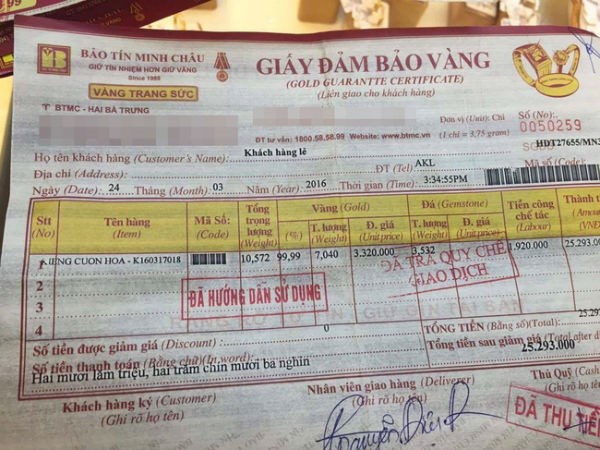 BẢO TÍN MINH CHÂU
GIỮ TÍN NHIỆM HƠN GIỮ VÀNG
Since 1989
VÀNG TRANG SỨC
GIẤY ĐẢM BẢO VÀNG
(GOLD GUARANTTE CERTIFICATE)
(Liên giao cho khách hàng)
BTMC - HAI BÀ TRƯNG
Đơn vị (Unit): Chỉ
(1 chỉ = 3,75 gram)
Số (No):
0050259
ĐT tư vấn: 1800.58.58.99 Website: www.btmc.vn
HDT27655/MN3
Họ tên khách hàng (Customer's Name): Khách hàng lẻ
Địa chỉ (Address): ĐT (Tel) AKL
Ngày (Date): 24 Tháng (Month) 03 Năm (Year) 2016 Thời gian (Time): 3:34:55PM
Stt (No) Tên hàng (Item) Mã Số: (Code) Tổng trọng lượng (Weight) Vàng (Gold) (%) T. lượng (Weight) Đ. giá (Unit price) Đá (Gemstone) T. lượng (Weight) Đ. giá (Unit price) Tiền công chế tác (Labour) Thành (VNĐ
CUON HOA - K160317018 10,572 99,99 7,040 3.320.000 3,532 1.920.000 25.293.000
2
3
4
ĐÃ HƯỚNG DẪN SỬ DỤNG
ĐÃ TRẢ QUY CHẾ GIAO DỊCH
Số tiền được giảm giá (Discount): 0
TỔNG TIỀN (Bằng số)(Total): 25.293.000
Số tiền thanh toán (Bằng chữ)(In word):
Tổng tiền sau giảm giá (Total after
25.293.000
Hai mươi lăm triệu, hai trăm chín mươi ba nghìn
Khách hàng ký (Customer)
(Ghi rõ họ tên)
Nhân viên giao hàng (Deliverer)
(Ghi rõ họ tên)
Thủ Quỹ (Cash
(Ghi rõ họ
ĐÃ THU TIỀN